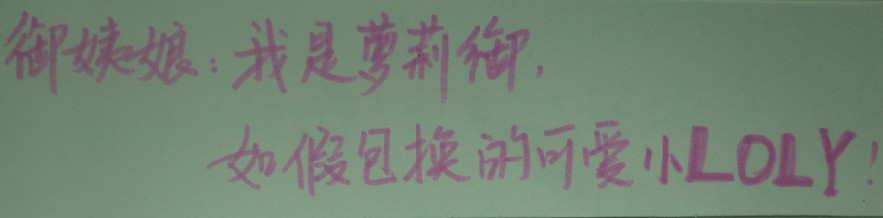 御姨娘：我是萝莉御，
如假包换的可爱小LOLY！